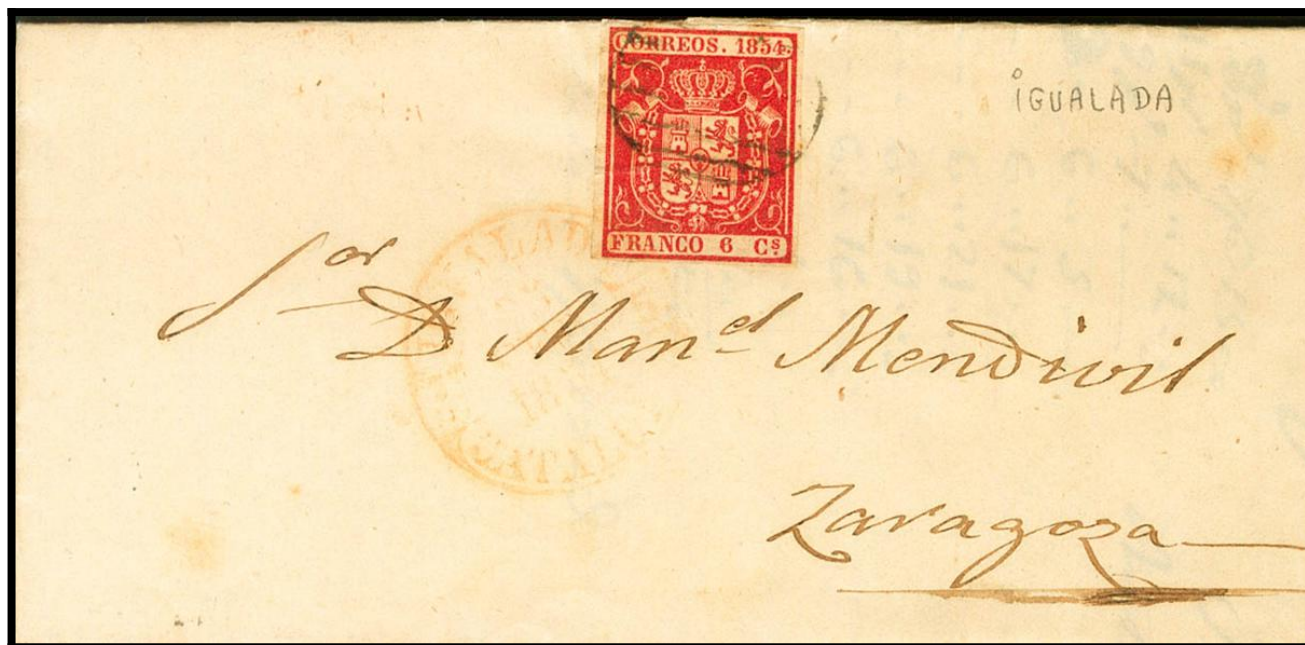 CORREOS. 1854.
FRANCO 6 Cs.
IGUALADA
Sor
D Manel Mendivil
Zaragoza